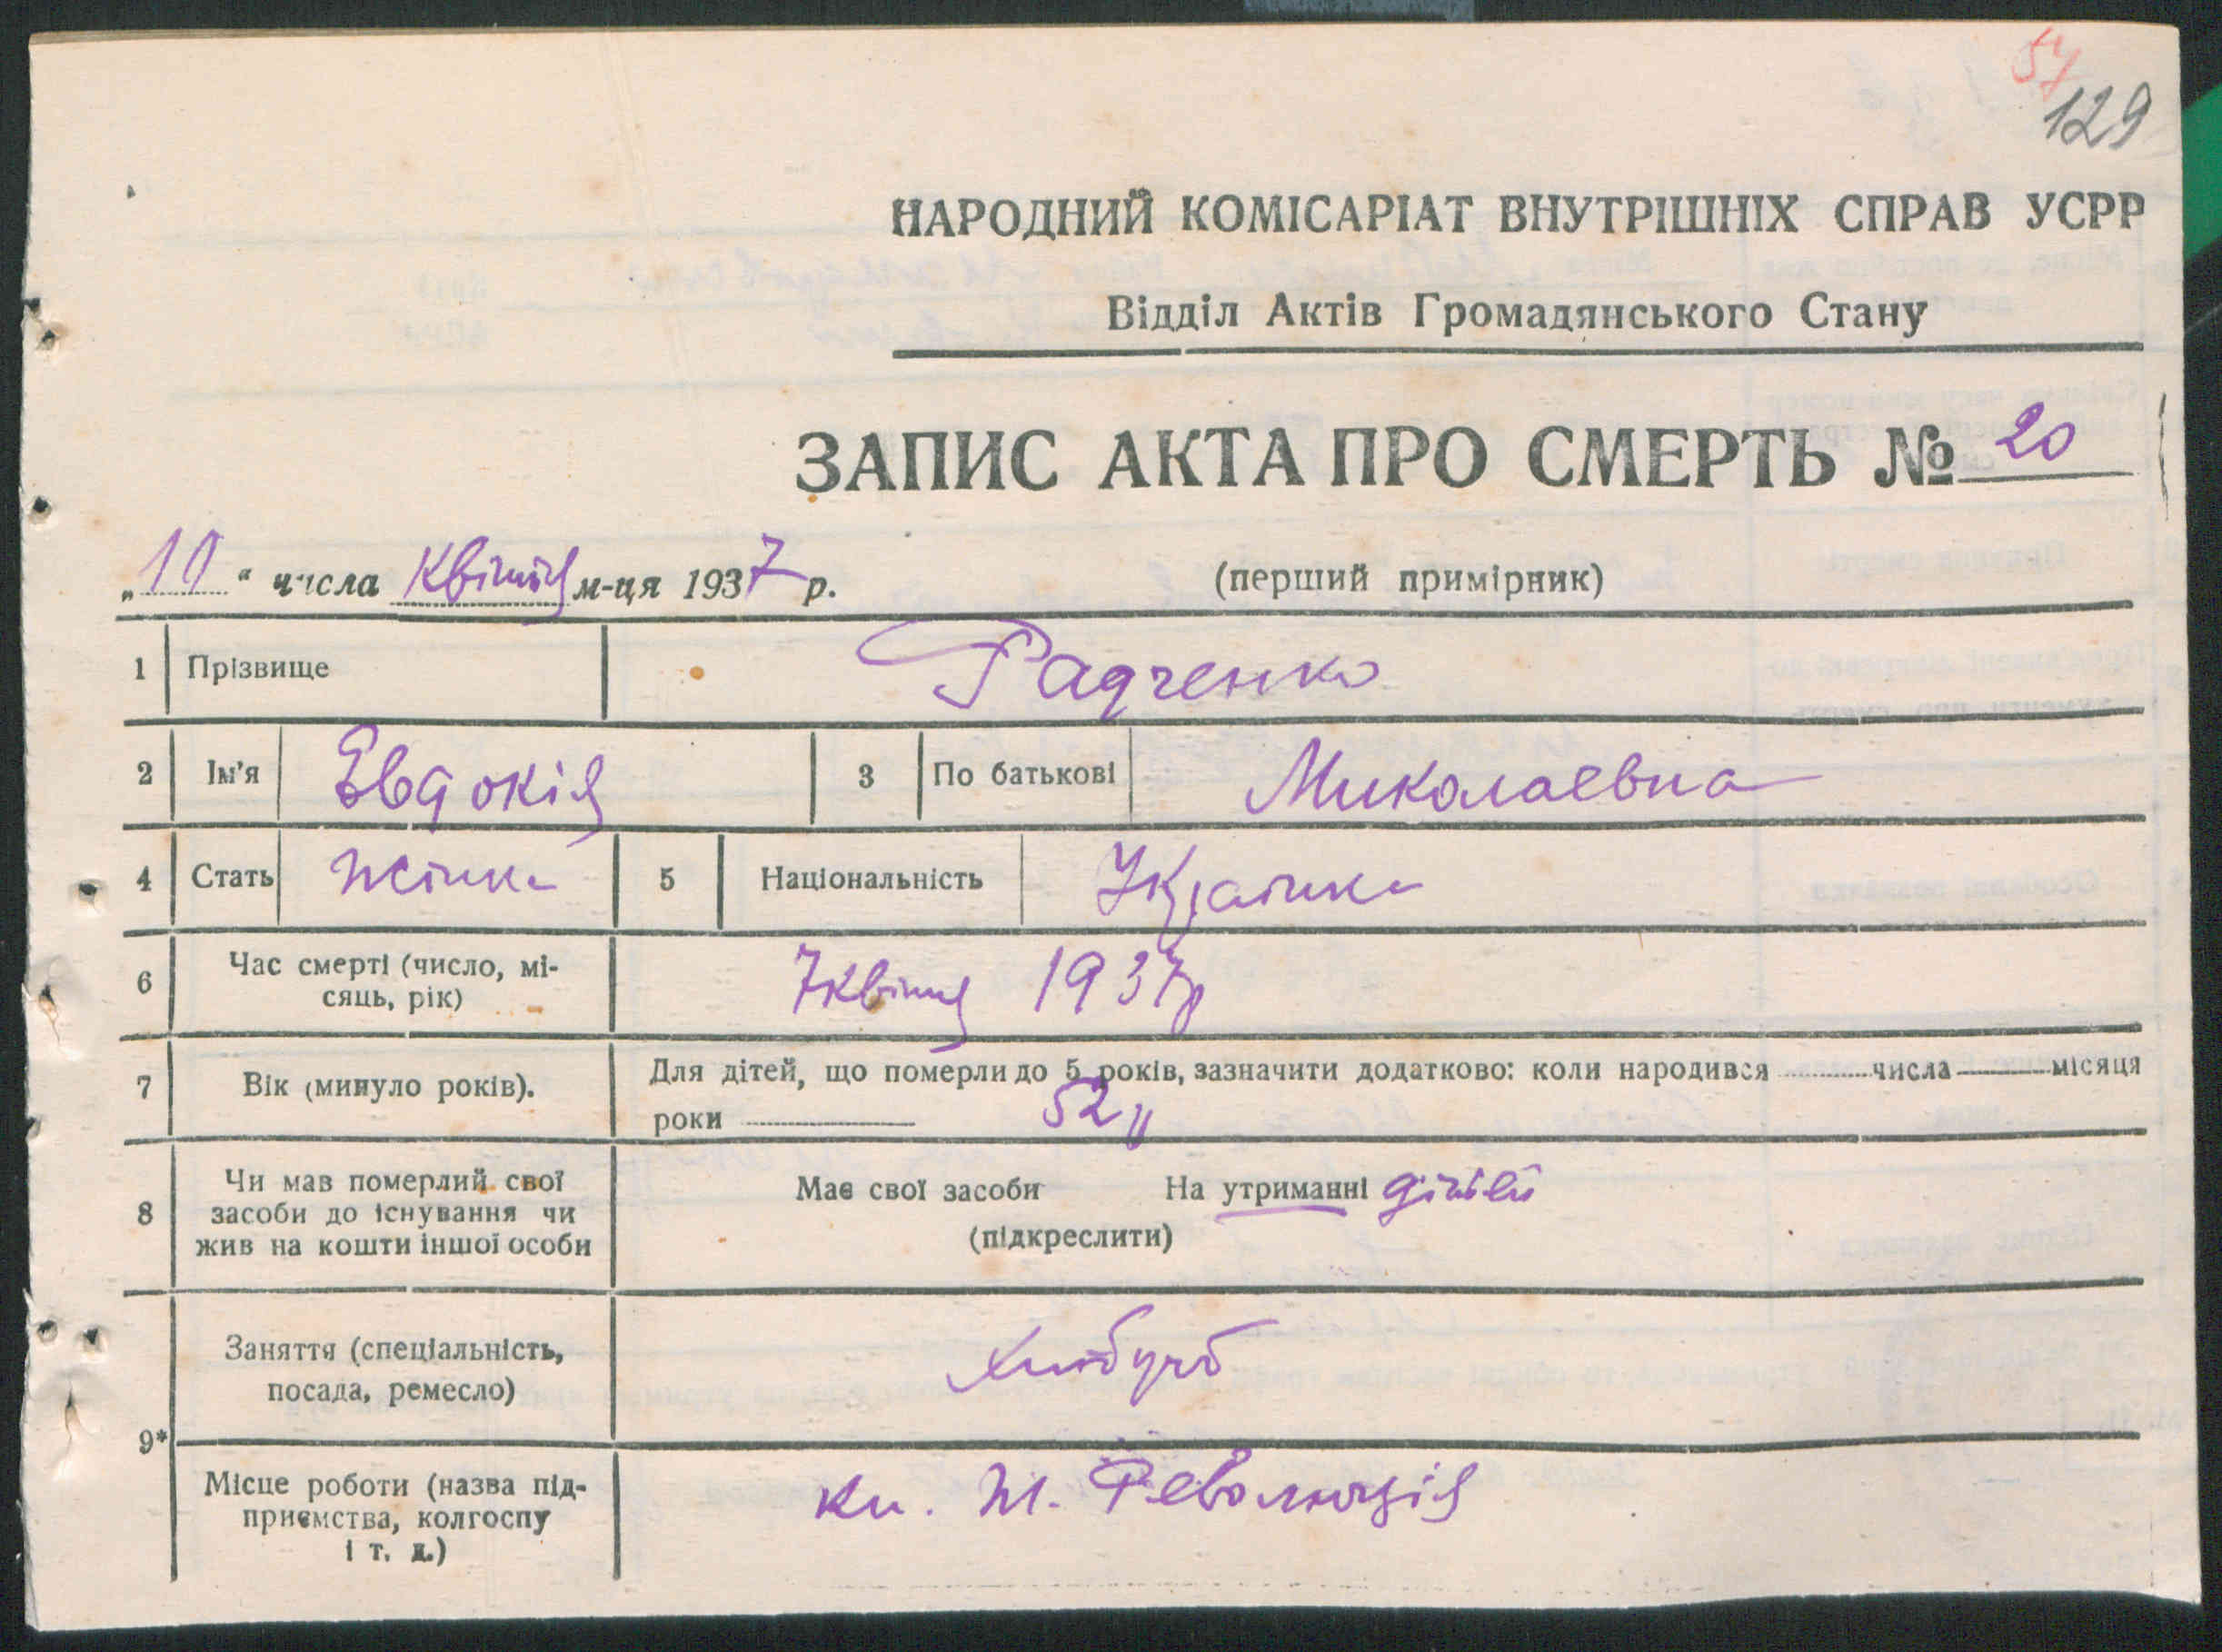 54
129
НАРОДНИЙ КОМІСАРІАТ ВНУТРІШНІХ СПРАВ УСРР
Відділ Актів Громадянського Стану
ЗАПИС АКТА ПРО СМЕРТЬ № 20
„10" числа Квітня м-ця 1937 р. (перший примірник)
1 Прізвище Радченко
2 Ім'я Евдокія 3 По батькові Миколаевна
4 Стать Жінка 5 Національність Українка
6 Час смерті (число, мі-
сяць, рік) 7 квітня 1937р
7 Вік (минуло років). Для дітей, що померли до 5 років, зазначити додатково: коли народився числа місяця
роки 52
8 Чи мав померлий свої
засоби до існування чи
жив на кошти іншої особи
Має свої засоби На утриманні дітей
(підкреслити)
9* Заняття (спеціальність,
посада, ремесло) Хлібороб
Місце роботи (назва під-
приємства, колгоспу
і т. д.)
Революція